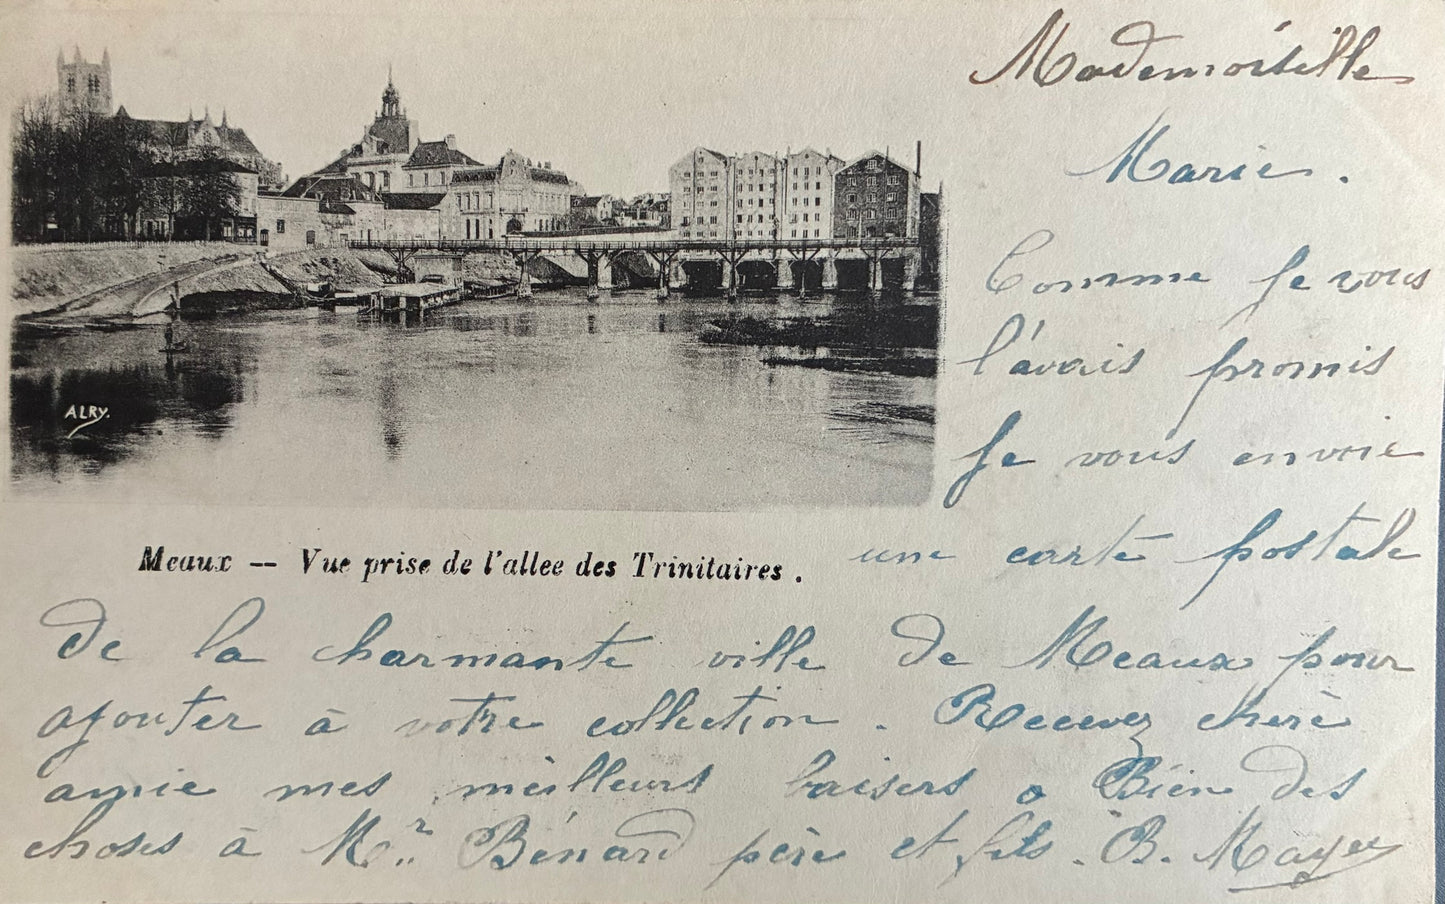 Mademoiselle
Marie.
Comme je vous
l'avais promis
je vous envoie
ALRY.
Meaux — Vue prise de l'allee des Trinitaires.
une carte postale
de la charmante ville de Meaux pour
ajouter à votre collection. Recevez chère
amie mes meilleurs baisers Bien des
choses à Mr. Bénard père et fils. B. Mayer